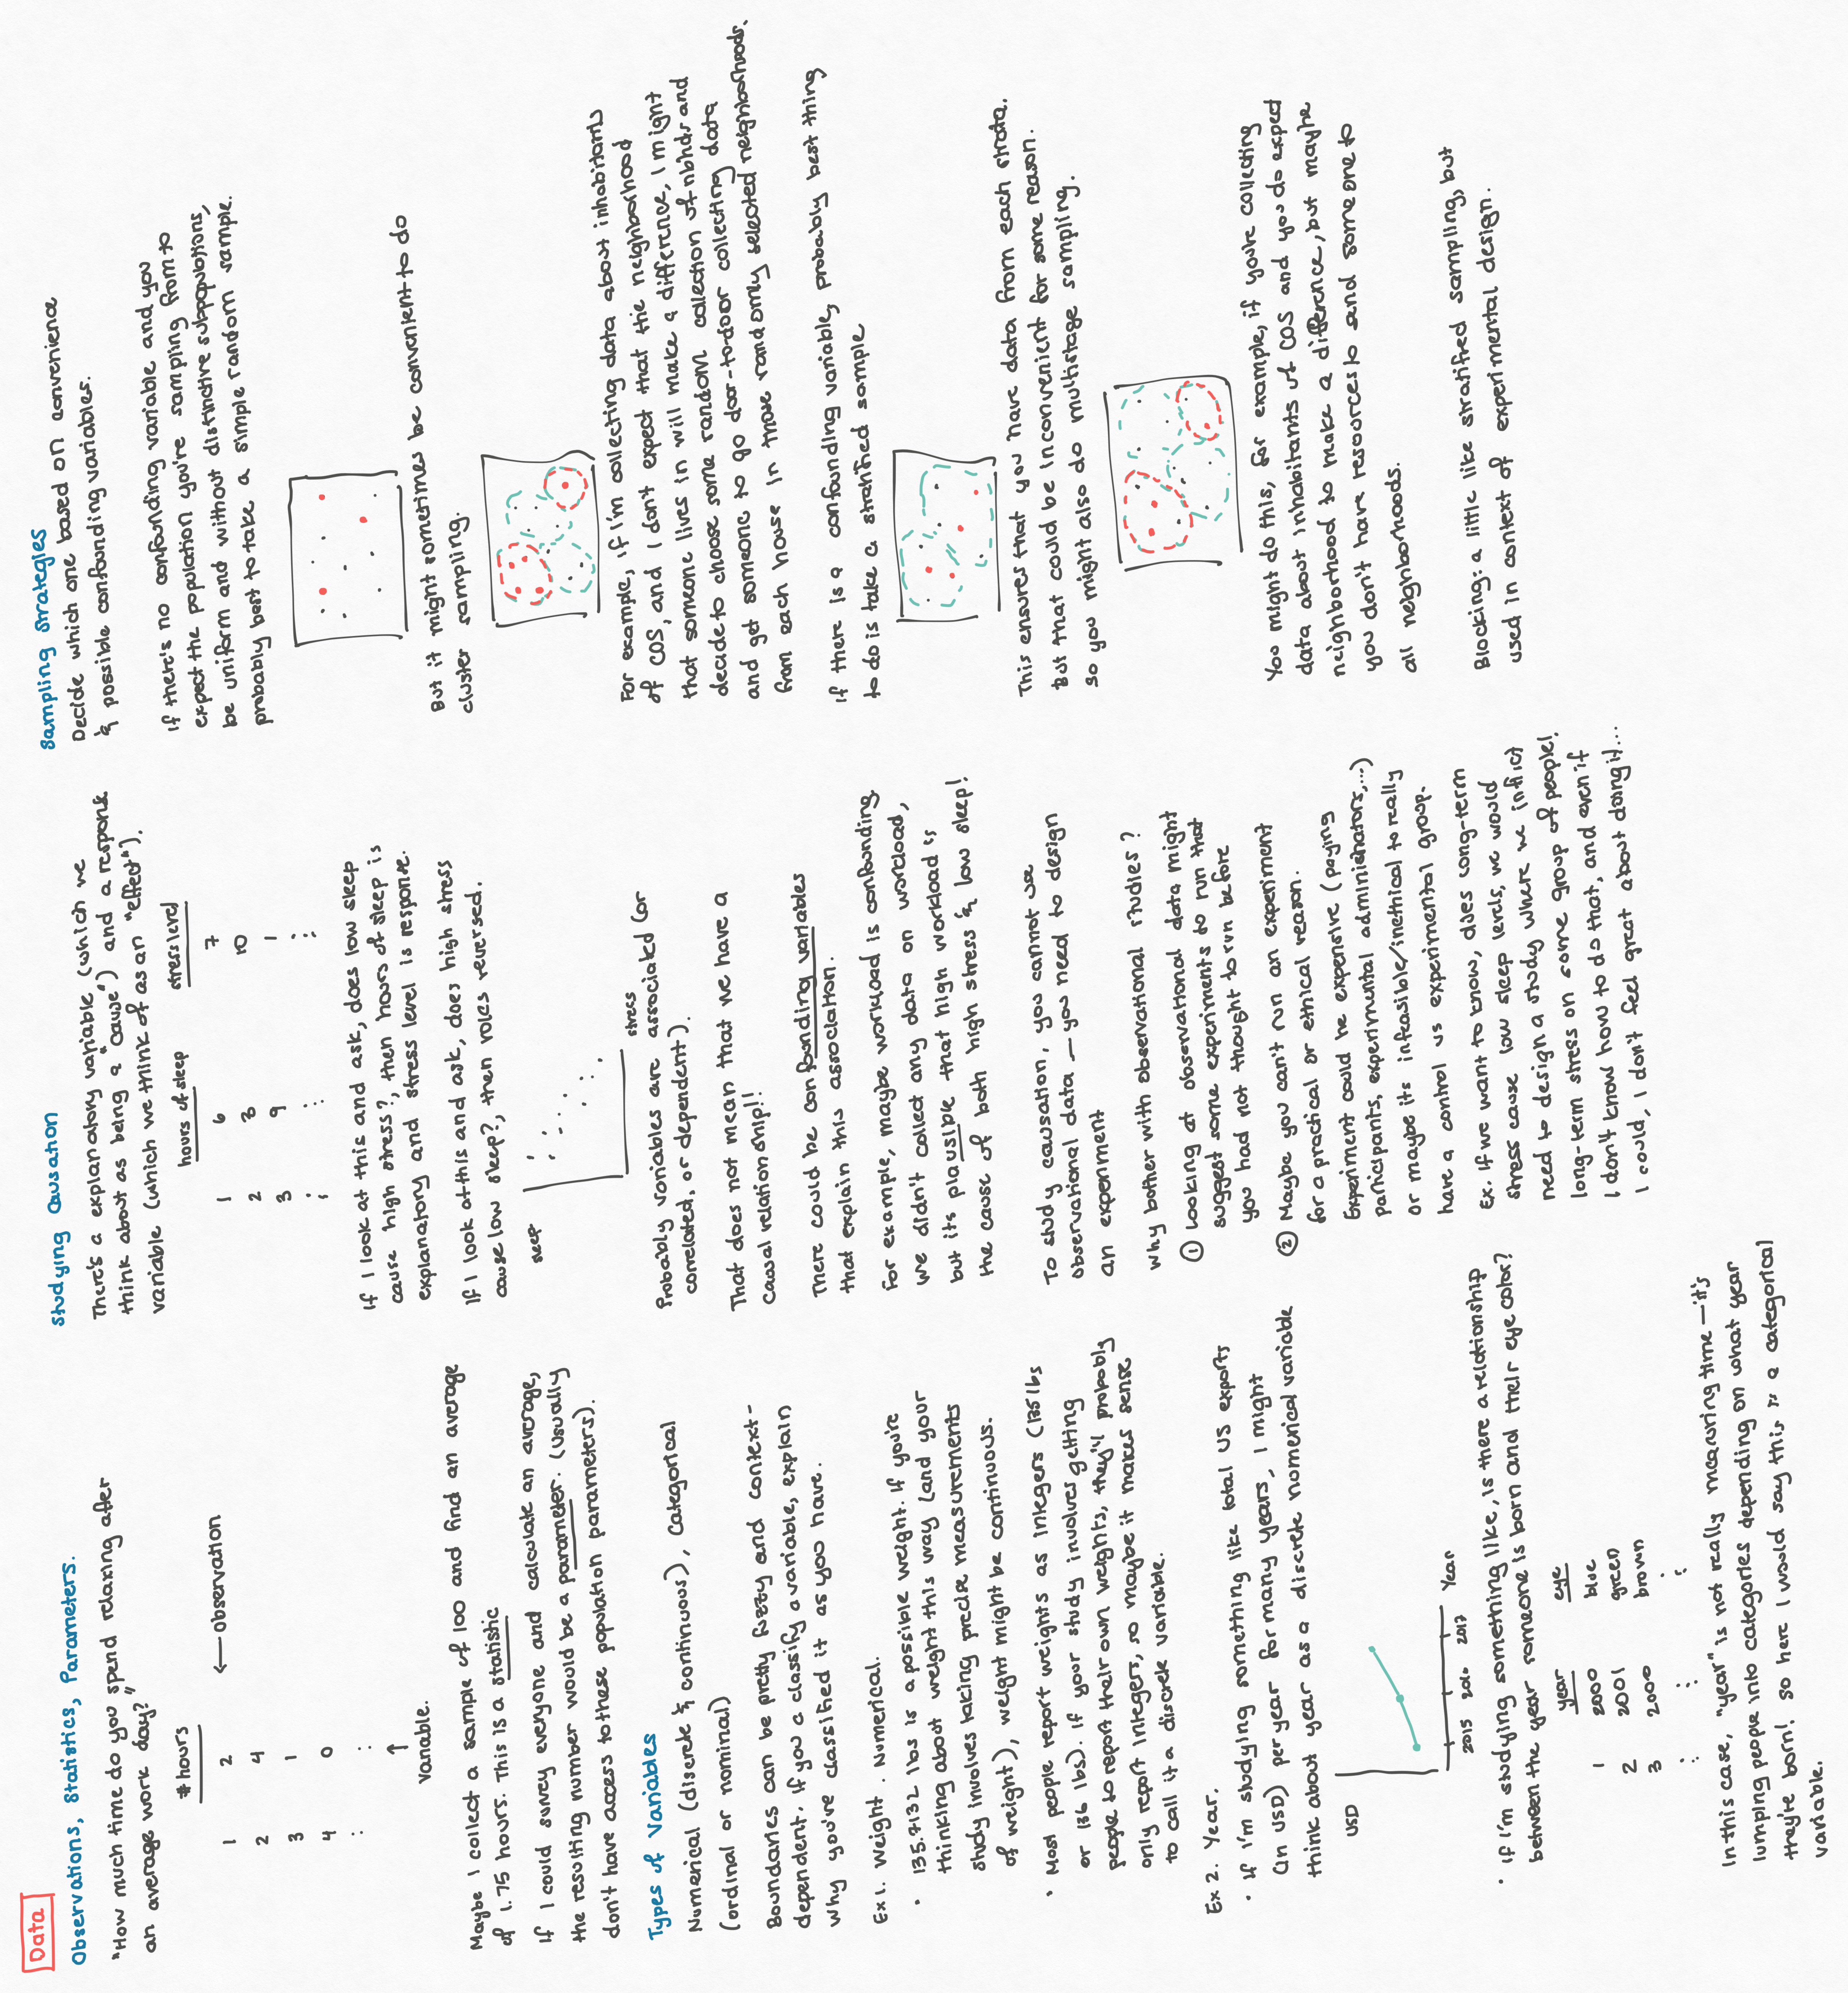 Data
Observations, Statistics, Parameters.
"How much time do you spend relaxing after
an average work day?"
# hours
1 2 ← Observation
2 4
3 1
4 0
: :
↑
variable.
Maybe I collect a sample of 100 and find an average
of 1.75 hours. This is a statistic
If I could survey everyone and calculate an average,
the resulting number would be a parameter. (Usually
don't have access to these population parameters).
Types of Variables
Numerical (discrete & continuous), Categorical
(ordinal or nominal)
Boundaries can be pretty fuzzy and context-
dependent. If you a classify a variable, explain
why you've classified it as you have.
Ex 1. Weight. Numerical.
• 135.7132 lbs is a possible weight. If you're
thinking about weight this way (and your
study involves taking precise measurements
of weight), weight might be continuous.
• Most people report weights as integers (135 lbs
or 136 lbs). If your study involves getting
people to report their own weights, they'll probably
only report integers, so maybe it makes sense
to call it a discrete variable.
Ex 2. Year.
• If I'm studying something like total US exports
(in USD) per year for many years, I might
think about year as a discrete numerical variable
USD
2015 2016 2017 Year
• If I'm studying something like, is there a relationship
between the year someone is born and their eye color?
year eye
1 2000 blue
2 2001 green
3 2000 brown
: : :
In this case, "year" is not really meauring time — it's
lumping people into categories depending on what year
they're born! So here I would say this is a categorical
variable.
Studying Causation
There's a explanatory variable (which we
think about as being a "cause") and a response
variable (which we think of as an "effect").
hours of sleep stress level
1 6 7
2 3 10
3 9 1
: : :
If I look at this and ask, does low sleep
cause high stress?, then hours of sleep is
explanatory and stress level is response.
If I look at this and ask, does high stress
cause low sleep?, then roles reversed.
sleep
stress
Probably variables are associated (or
correlated, or dependent).
That does not mean that we have a
causal relationship!!
There could be confounding variables
that explain this association.
For example, maybe workload is confounding.
We didn't collect any data on workload,
but its plausible that high workload is
the cause of both high stress & low sleep!
To study causation, you cannot use
observational data — you need to design
an experiment
Why bother with observational studies?
① Looking at observational data might
suggest some experiments to run that
you had not thought to run before
② Maybe you can't run an experiment
for a practical or ethical reason.
Experiment could be expensive (paying
participants, experimental administrators,...)
or maybe its infeasible/unethical to really
have a control vs experimental group.
Ex. If we want to know, does long-term
stress cause low sleep levels, we would
need to design a study where we inflict
long-term stress on some group of people!
I don't know how to do that, and even if
I could, I don't feel great about doing it...
Sampling Strategies
Decide which one based on convenience
& possible confounding variables.
If there's no confounding variable and you
expect the population you're sampling from to
be uniform and without distinctive subpopulations,
probably best to take a simple random sample.
But it might sometimes be convenient to do
cluster sampling.
For example, if I'm collecting data about inhabitants
of COS, and I don't expect that the neighborhood
that someone lives in will make a difference, I might
decide to choose some random collection of nbhds and
and get someone to go door-to-door collecting data
from each house in those randomly selected neighborhoods.
If there is a confounding variable, probably best thing
to do is take a stratified sample
This ensures that you have data from each strata.
But that could be inconvenient for some reason.
So you might also do multistage sampling.
You might do this, for example, if you're collecting
data about inhabitants of COS and you do expect
neighborhood to make a difference, but maybe
you don't have resources to send someone to
all neighborhoods.
Blocking: a little like stratified sampling, but
used in context of experimental design.